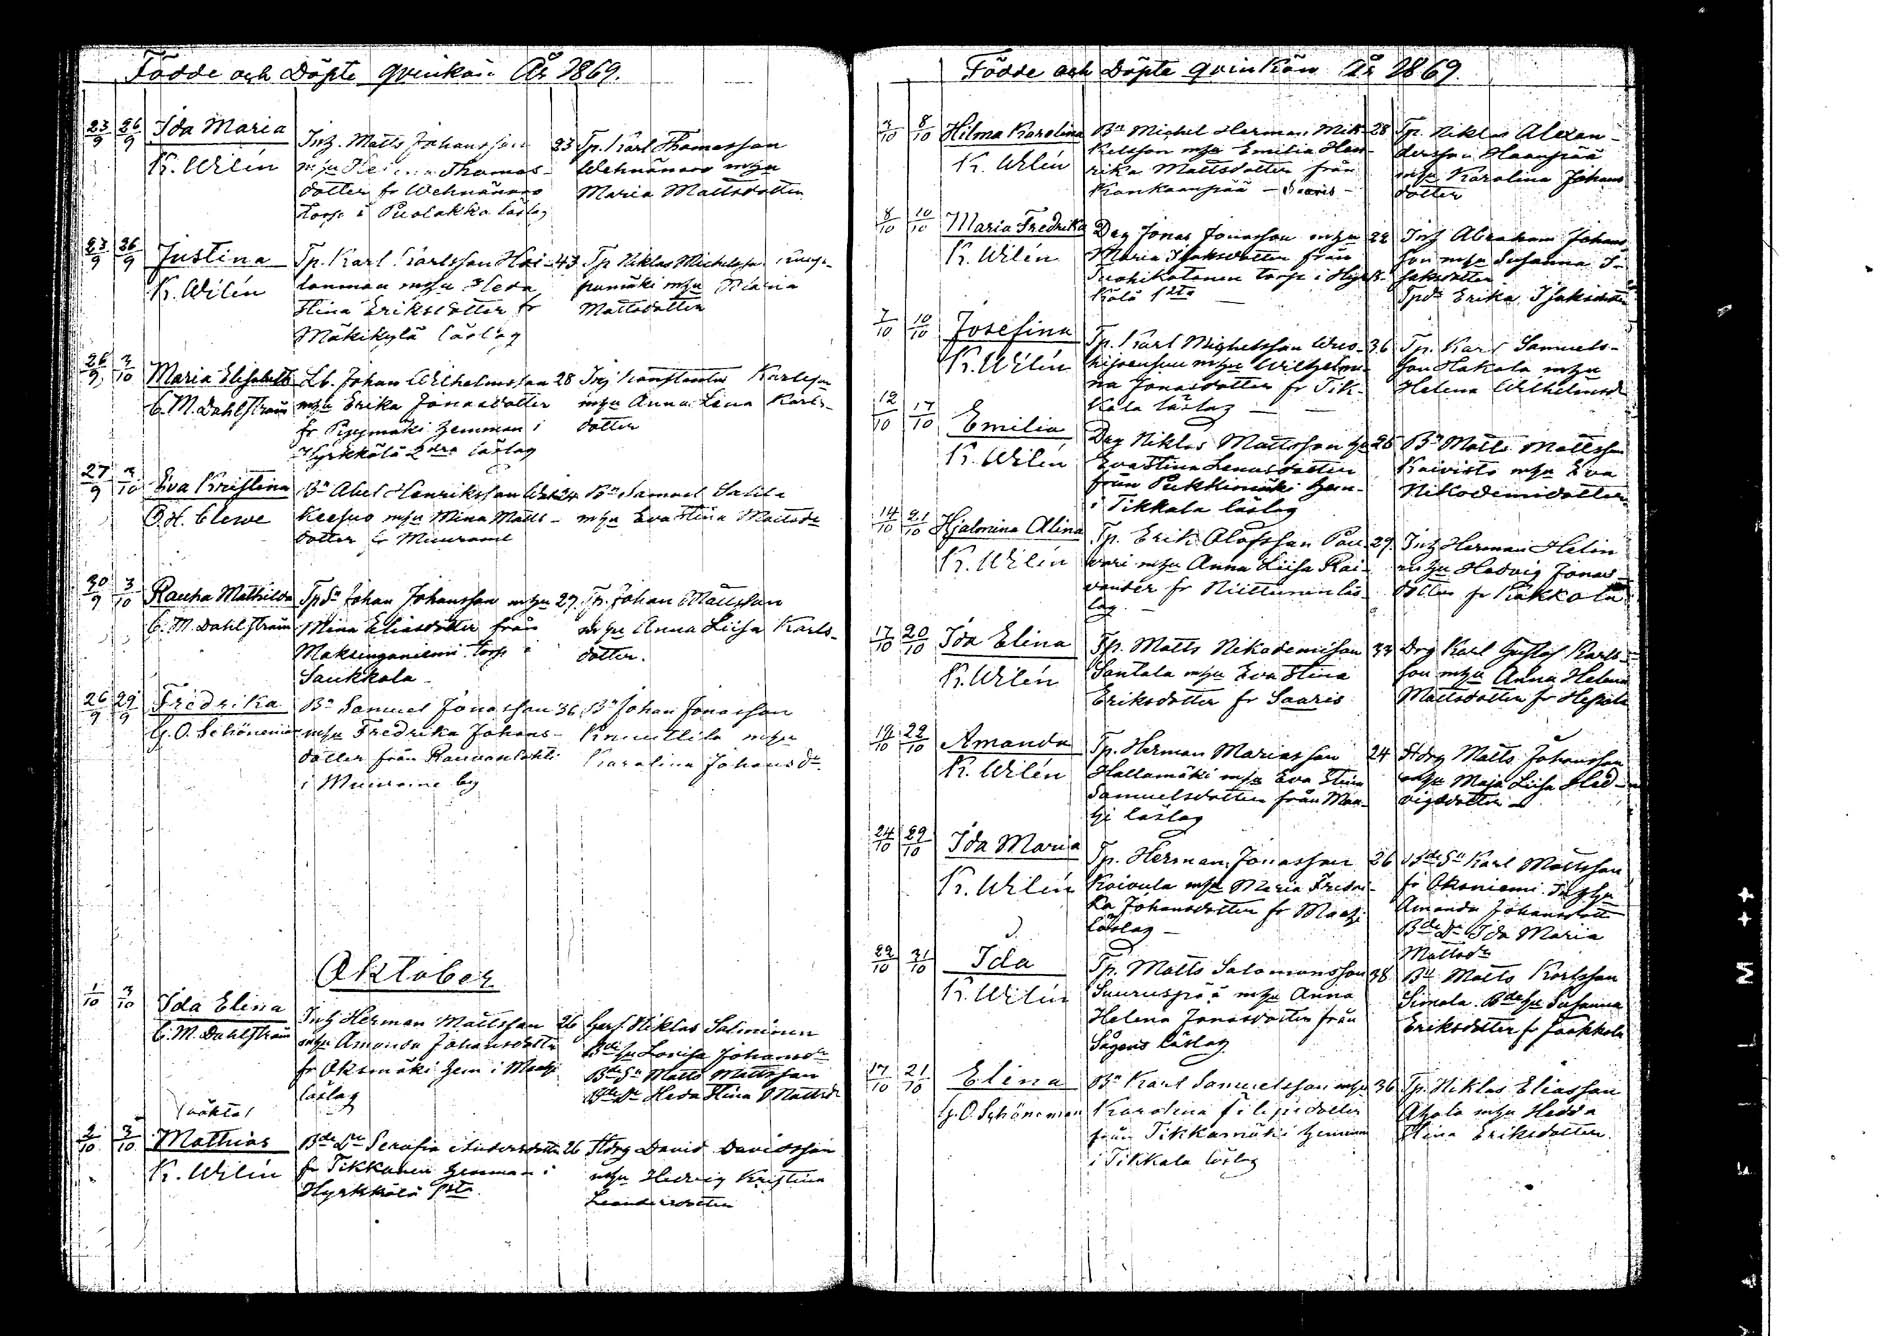 Födde och Döpte qvinkön År 1869.
23/9 26/9 Ida Maria
K. Wilén
Inh. Matts Johansson 23
m hu Helena Thomas-
dotter fr Wehnänaro
torp i Puolakka läslag
Tp. Karl Thomasson
Wehnänaro m hu
Maria Mattsdotter
23/9 26/9 Justina
K. Wilén
Tp. Karl Karlsson Hai- 43
lanmaa m hu Heda
Stina Eriksdotter fr
Mäkikylä läslag
Tp Niklas Michelsson
pumäki m hu Maria
Mattsdotter
26/9 3/10 Maria Elisabeth
C. M. Dahlström
Lb. Johan Wilhelmsson 28
m hu Erika Jonasdotter
fr Pyymäki hemman i
Hyrkkölä 2dra läslag
Inh Konstantin Karlsson
m hu Anna Lena Karls-
dotter
27/9 3/10 Eva Kristina
O. H. Cleve
Bn Abel Henriksson 24
Keesuo m hu Mina Matts-
dotter fr Muurame
Bn Samuel Salila
m hu Eva Stina Mattsdr
30/9 3/10 Rauha Mathilda
C. M. Dahlström
Tpdsn Johan Johansson m hu 27
Mina Eliasdotter från
torp i
Saukkola
Tp. Johan Mattsson
m hu Anna Liisa Karls-
dotter.
26/9 29/9 Fredrika
G. O. Schöneman
Bn Samuel Jonasson 36
m hu Fredrika Johans-
dotter från Rauvanlahti
i Muurame by
Bn Johan Jonasson
Knuuttila m hu
Karolina Johansdr
Oktober
1/10 3/10 Ida Elena
C. M. Dahlström
Inh Herman Mattsson 26
m hu Amanda Johansdotter
fr Oksmäki hem i Maahi
läslag
Gerf. Niklas Salminen
Bde hu Lovisa Johansdr
Bde Sn Matts Mattsson
Bde Dr Heda Stina Mattsdr
(oäkta)
2/10 3/10 Mathias
K. Wilén
Bde Dr Serafia Andersdotter 26
fr Tikkanen hemman i
Hyrkkölä 1sta
Hdrg David Davidsson
m hu Hedvig Kristina
Leandersdotter
Födde och Döpte qvinkön År 1869.
3/10 8/10 Hilma Karolina
K. Wilén
Bn Michel Herman Mik- 28
kelsson m hu Emilia Hen-
rika Mattsdotter från
Kankaanpää – Saaris –
Tp. Niklas Alexan-
dersson Haanpää
m hu Karolina Johans
dotter
8/10 10/10 Maria Fredrika
K. Wilén
Drg Jonas Jonasson m hu 22
Maria Isaksdotter från
torp i Hyrk-
kölä 1sta –
Inh Abraham Johans
son m hu Susanna I-
saksdotter
Tpdr Erika Isaksdotter
7/10 10/10 Josefina
K. Wilén
Tp. Karl Michelsson 36
m hu Wilhelmi-
na Jonasdotter fr Tik-
kala läslag –
Tp. Karl Samuels-
son Hakala m hu
Helena Wilhelmsdr
12/10 17/10 Emilia
K. Wilén
Drg Niklas Mattsson hu 25
Eva Stina Lenasdotter
från Pukkimäki hem-
i Tikkala läslag
Bn Matts Mattsson
Koivisto m hu Eva
Nikodemidotter
14/10 21/10 Hjalmina Alina
K. Wilén
Tp. Erik Olofsson Paa- 29.
vari m hu Anna Liisa Rai-
vander fr Niittunin läs-
lag. –
Inh Herman Helin
m hu Hedvig Jonas
dotter fr Kakkola
17/10 20/10 Ida Elina
K. Wilén
Tp. Matts Nikodemisson 33
Santala m hu Eva Stina
Eriksdotter fr Saaris
Drg Karl Gustaf Karls-
son m hu Anna Helena
Mattsdotter fr Heikola
19/10 22/10 Amanda
K. Wilén
Tp. Herman Mariasson 24
Hallamäki m hu Eva Stina
Samuelsdotter från Maa-
hi läslag
Hdrg Matts Johansson
m hu Maja Liisa Hed-
vigsdotter –
24/10 29/10 Ida Maria
K. Wilén
Tp. Herman Jonasson 26
Koivula m hu Maria Fredri-
ka Johansdotter fr Maahi
läslag –
Bde Sn Karl Mattsson
fr Oksniemi. Inh hu
Amanda Johansdotter
Bde Dr Ida Maria
Mattsdr
22/10 31/10 Ida
K. Wilén
Tp. Matts Salomonsson 38
Suuruspää m hu Anna
Helena Jonasdotter från
Sågens läslag
Bn Matts Karlsson
Simola. Bde hu Susanna
Eriksdotter fr Jaakkola
17/10 21/10 Elina
G. O. Schöneman
Bn Karl Samuelsson m hu 36
Karolina Filipsdotter
från Tikkamäki hemman
i Tikkala läslag
Tp. Niklas Eliasson
Ahola m hu Hedda
Stina Eriksdotter.
F I L M ++